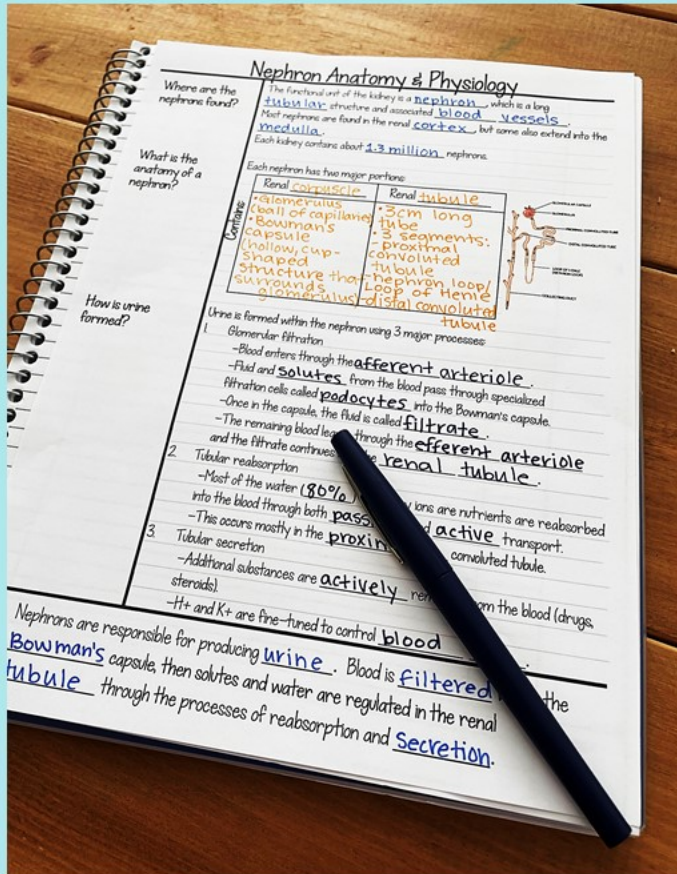 Nephron Anatomy & Physiology
Where are the
nephrons found?
The functional unit of the kidney is a nephron, which is a long
tubular structure and associated blood vessels.
Most nephrons are found in the renal cortex, but some also extend into the
medulla.
Each kidney contains about 1.3 million nephrons.
What is the
anatomy of a
nephron?
Each nephron has two major portions:
Contains
Renal corpuscle
• Glomerulus
(ball of capillaries)
• Bowman's
capsule
(hollow, cup-
shaped
structure that
surrounds
glomerulus)
Renal tubule
• 3cm long
tube
• 3 segments:
-proximal
convoluted
tubule
-nephron loop/
Loop of Henle
-distal convoluted
tubule
GLOMERULAR CAPSULE
GLOMERULUS
PROXIMAL CONVOLUTED TUBE
DISTAL CONVOLUTED TUBE
LOOP OF HENLE
COLLECTING DUCT
How is urine
formed?
Urine is formed within the nephron using 3 major processes:
1. Glomerular filtration
-Blood enters through the afferent arteriole.
-Fluid and solutes from the blood pass through specialized
filtration cells called podocytes into the Bowman's capsule.
-Once in the capsule, the fluid is called filtrate.
-The remaining blood through the efferent arteriole
and the filtrate continues renal tubule.
2. Tubular reabsorption
-Most of the water (80%) ions are nutrients are reabsorbed
into the blood through both active transport.
-This occurs mostly in the convoluted tubule.
3. Tubular secretion
-Additional substances are actively from the blood (drugs,
steroids).
-H+ and K+ are fine-tuned to control blood
Nephrons are responsible for producing urine. Blood is filtered the
Bowman's capsule, then solutes and water are regulated in the renal
tubule through the processes of reabsorption and secretion.